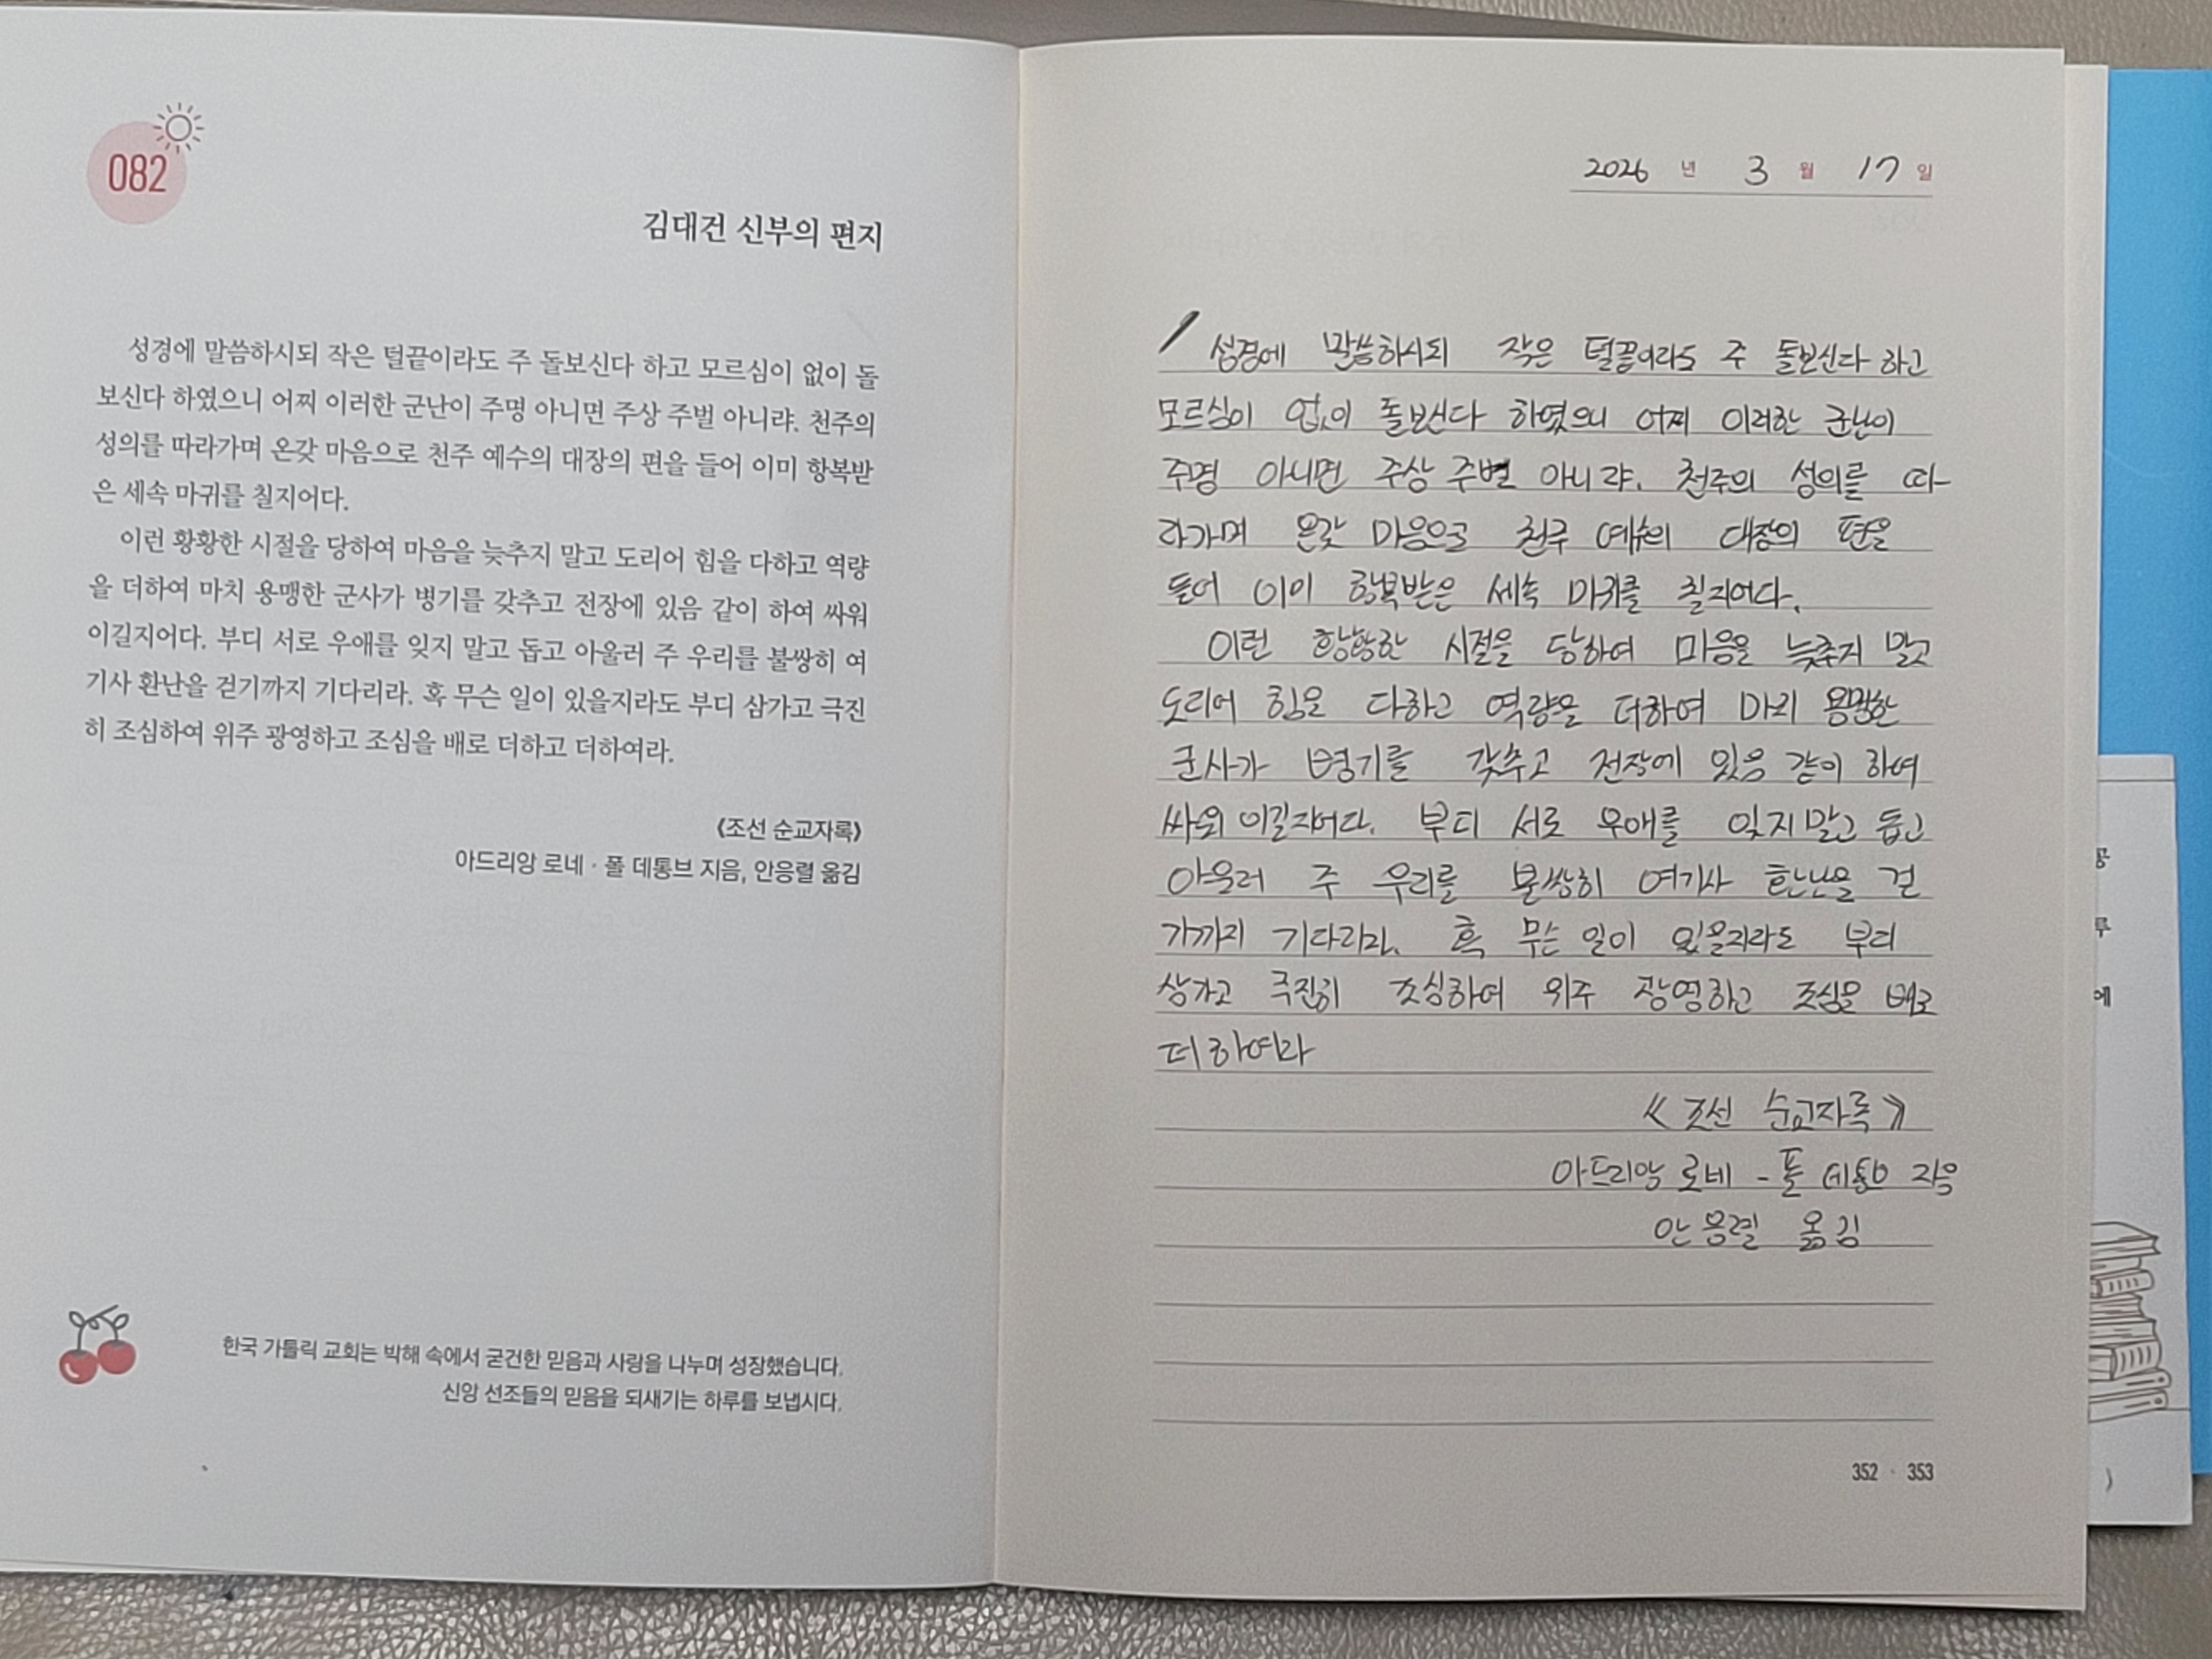 082
김대건 신부의 편지
성경에 말씀하시되 작은 털끝이라도 주 돌보신다 하고 모르심이 없이 돌
보신다 하였으니 어찌 이러한 군난이 주명 아니면 주상 주벌 아니랴. 천주의
성의를 따라가며 온갖 마음으로 천주 예수의 대장의 편을 들어 이미 항복받
은 세속 마귀를 칠지어다.
이런 황황한 시절을 당하여 마음을 늦추지 말고 도리어 힘을 다하고 역량
을 더하여 마치 용맹한 군사가 병기를 갖추고 전장에 있음 같이 하여 싸워
이길지어다. 부디 서로 우애를 잊지 말고 돕고 아울러 주 우리를 불쌍히 여
기사 환난을 걷기까지 기다리라. 혹 무슨 일이 있을지라도 부디 삼가고 극진
히 조심하여 위주 광영하고 조심을 배로 더하고 더하여라.
《조선 순교자록》
아드리앙 로네 · 폴 데통브 지음, 안응렬 옮김
한국 가톨릭 교회는 박해 속에서 굳건한 믿음과 사랑을 나누며 성장했습니다.
신앙 선조들의 믿음을 되새기는 하루를 보냅시다.
2026 년 3 월 17 일
성경에 말씀하시되 작은 털끝이라도 주 돌보신다 하고
모르심이 없이 돌보신다 하였으니 어찌 이러한 군난이
주명 아니면 주상 주벌 아니랴. 천주의 성의를 따
라가며 온갖 마음으로 천주 예수의 대장의 편을
들어 이미 항복받은 세속 마귀를 칠지어다.
이런 황황한 시절을 당하여 마음을 늦추지 말고
도리어 힘을 다하고 역량을 더하여 마치 용맹한
군사가 병기를 갖추고 전장에 있음 같이 하여
싸워 이길지어다. 부디 서로 우애를 잊지 말고 돕고
아울러 주 우리를 불쌍히 여기사 환난을 걷
기까지 기다리라. 혹 무슨 일이 있을지라도 부디
삼가고 극진히 조심하여 위주 광영하고 조심을 배로
더하여라
《조선 순교자록》
아드리앙 로네 - 폴 데통브 지음
안응렬 옮김
352 · 353
공
루
에
)